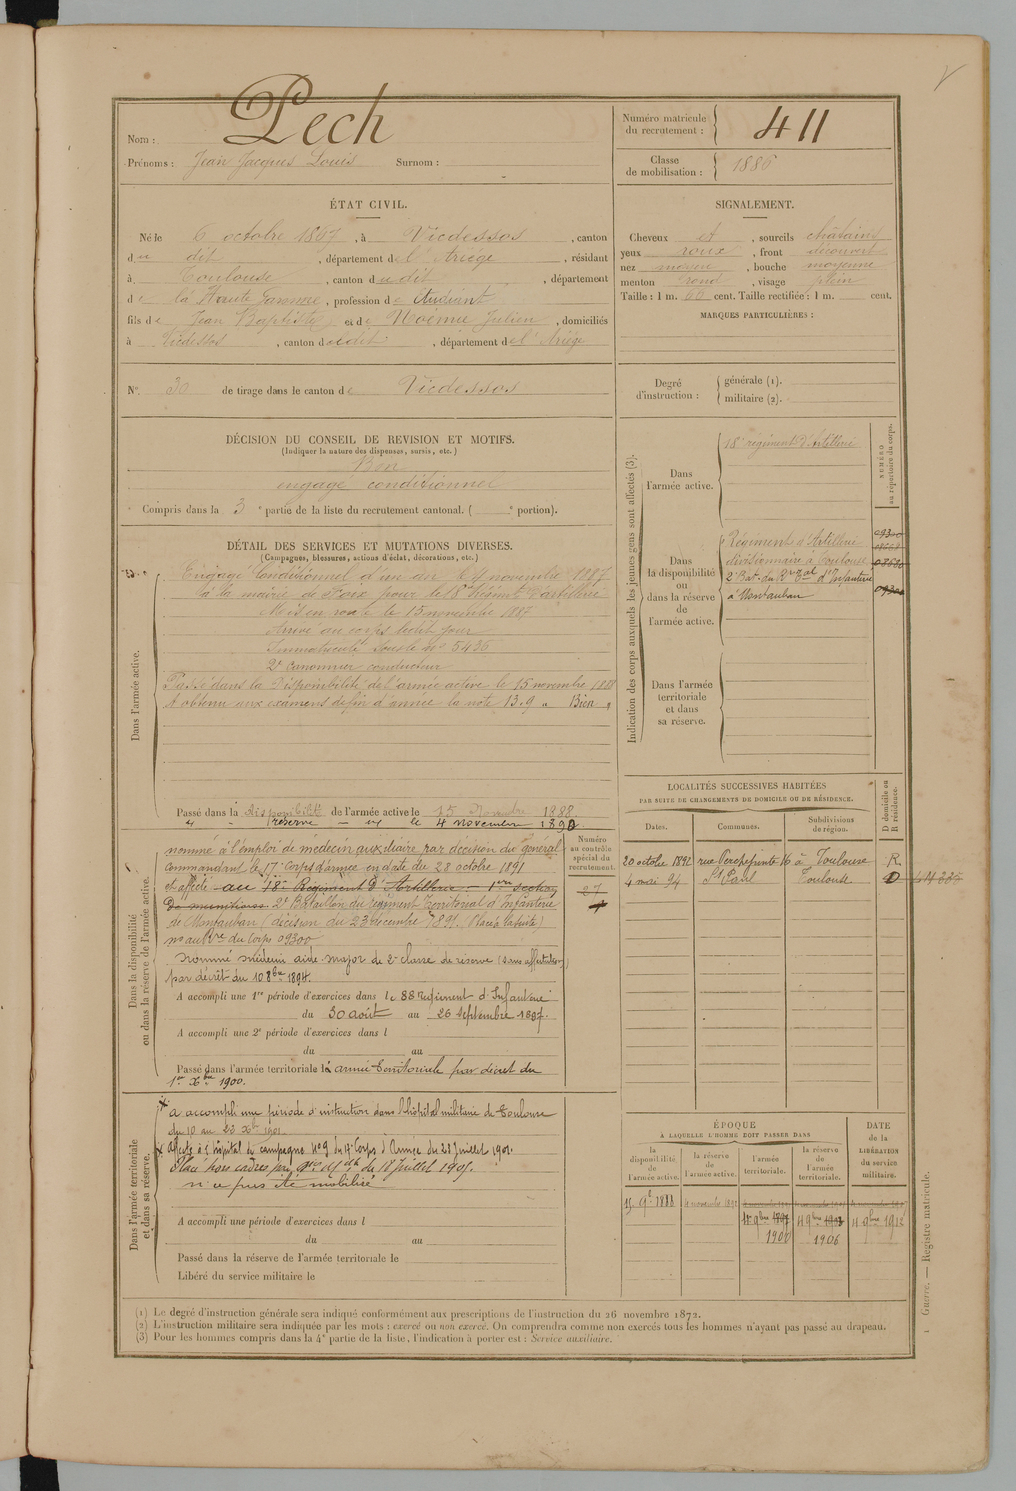 Nom : Pech
Prénoms : Jean Jacques Louis Surnom :
Numéro matricule du recrutement : 411
Classe de mobilisation : 1886
ÉTAT CIVIL.
Né le 6 octobre 1867, à Vicdessos, canton
du dit, département de l'Ariège, résidant
à Toulouse, canton dudit, département
de la Haute Garonne, profession de Étudiant
fils de Jean Baptiste et de Noémie Julien, domiciliés
à Vicdessos, canton dudit, département de l'Ariège
SIGNALEMENT.
Cheveux et, sourcils châtains
yeux roux, front découvert
nez moyen, bouche moyenne
menton rond, visage plein
Taille : 1 m. 66 cent. Taille rectifiée : 1 m. cent.
MARQUES PARTICULIÈRES :
N° 30 de tirage dans le canton de Vicdessos
Degré d'instruction : générale (1).
militaire (2).
DÉCISION DU CONSEIL DE REVISION ET MOTIFS.
(Indiquer la nature des dispenses, sursis, etc.)
Bon
engagé conditionnel
Compris dans la 3e partie de la liste du recrutement cantonal. ( e portion).
DÉTAIL DES SERVICES ET MUTATIONS DIVERSES.
(Campagnes, blessures, actions d'éclat, décorations, etc.)
Dans l'armée active.
Engagé Conditionnel d'un an le 4 novembre 1887
à la mairie de Foix pour le 18e Régiment d'artillerie
Mis en route le 15 novembre 1887
Arrivé au corps ledit jour
Immatriculé sous le n° 5436
2e Canonnier conducteur
Passé dans la Disponibilité de l'armée active le 15 novembre 1888
A obtenu aux examens de fin d'année la note 13.9 " Bien "
Passé dans la disponibilité de l'armée active le 15 Novembre 1888
" " réserve " " le 4 novembre 1892.
Indication des corps auxquels les jeunes gens sont affectés (3).
NUMÉRO au répertoire du corps.
Dans l'armée active.
18e régiment d'Artillerie
Dans la disponibilité ou dans la réserve de l'armée active.
Régiment d'Artillerie
divisionnaire à Toulouse
2e Bat. du Rgt Tal d'Infanterie
à Montauban
Dans l'armée territoriale et dans sa réserve.
LOCALITÉS SUCCESSIVES HABITÉES
PAR SUITE DE CHANGEMENTS DE DOMICILE OU DE RÉSIDENCE.
D domicile ou R résidence.
Dates. Communes. Subdivisions de région.
20 octobre 1892 rue Perchepinte 16 à Toulouse R.
4 mai 94 St Paul Toulouse D
Dans la disponibilité ou dans la réserve de l'armée active.
Numéro au contrôle spécial du recrutement.
27
nommé à l'emploi de médecin auxiliaire par décision du général
commandant le 17e corps d'armée en date du 28 octobre 1891
et affecté au 18e Régiment d'Artillerie – 1ere section
de munitions 2e Bataillon du régiment territorial d'Infanterie
de Montauban (décision du 23 décembre 1891.
n° au Rre du Corps 09300
Nommé médecin aide-major de 2e classe de réserve (sans affectation)
par décret du 10 8bre 1894.
A accompli une 1re période d'exercices dans le 88 Régiment d'Infanterie
du 30 août au 26 Septembre 1897.
A accompli une 2e période d'exercices dans l
du au
Passé dans l'armée territoriale le armée territoriale par décret du
1er Xbre 1900.
Dans l'armée territoriale et dans sa réserve.
A accompli une période d'instruction dans l'hôpital militaire de Toulouse
du 10 au 23 Xbre 1901.
Affecté à l'hôpital de campagne N° 9 du 17e Corps d'Armée du 23 Juillet 1901.
Placé hors cadres du 18 Juillet 1905.
n'a pas été mobilisé
A accompli une période d'exercices dans l
du au
Passé dans la réserve de l'armée territoriale le
Libéré du service militaire le
ÉPOQUE
À LAQUELLE L'HOMME DOIT PASSER DANS
DATE de la LIBÉRATION du service militaire.
la disponibilité de l'armée active. la réserve de l'armée active. l'armée territoriale. la réserve de l'armée territoriale.
15 9e 1888 4 novembre 1892
4 9bre 1897 4 9bre 4 9bre 1912
1900 1906
(1) Le degré d'instruction générale sera indiqué conformément aux prescriptions de l'instruction du 26 novembre 1872.
(2) L'instruction militaire sera indiquée par les mots : exercé ou non exercé. On comprendra comme non exercés tous les hommes n'ayant pas passé au drapeau.
(3) Pour les hommes compris dans la 4e partie de la liste, l'indication à porter est : Service auxiliaire.
1 Guerre. — Registre matricule.